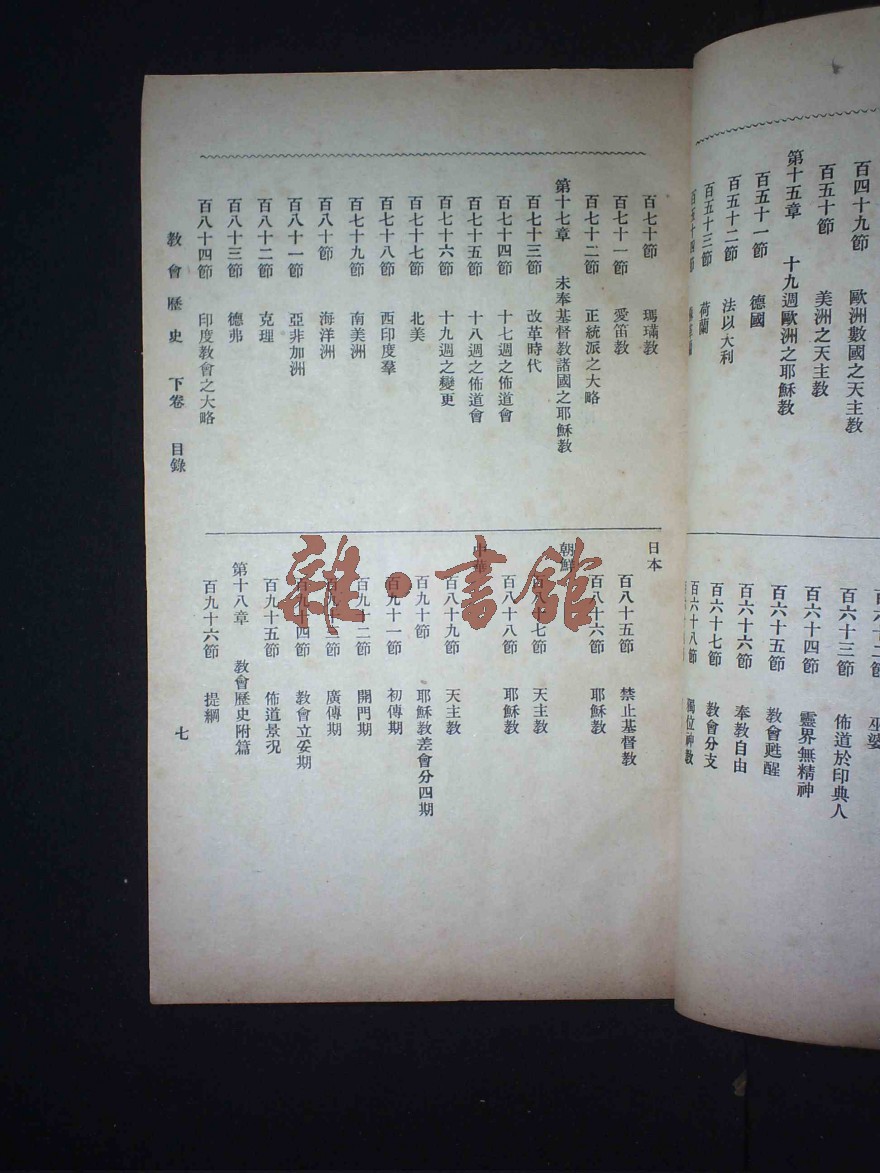 百四十九節 歐洲數國之天主教
百五十節 美洲之天主教
第十五章 十九週歐洲之耶穌教
百五十一節 德國
百五十二節 法以大利
百五十三節 荷蘭
百五十四節
百六十三節 佈道於印典人
百六十四節 靈界無精神
百六十五節 教會甦醒
百六十六節 奉教自由
百六十七節 教會分支
百六十八節 獨位神教
百七十節 瑪瑞教
百七十一節 愛笛教
百七十二節 正統派之大略
第十七章 未奉基督教諸國之耶穌教
百七十三節 改革時代
百七十四節 十七週之佈道會
百七十五節 十八週之佈道會
百七十六節 十九週之變更
百七十七節 北美
百七十八節 西印度羣
百七十九節 南美洲
百八十節 海洋洲
百八十一節 亞非加洲
百八十二節 克理
百八十三節 德弗
百八十四節 印度教會之大略
日本
百八十五節 禁止基督教
百八十六節 耶穌教
朝鮮
百八十七節 天主教
百八十八節 耶穌教
中華
百八十九節 天主教
百九十節 耶穌教差會分四期
百九十一節 初傳期
百九十二節 開門期
百九十三節 廣傳期
百九十四節 教會立妥期
百九十五節 佈道景況
第十八章 教會歷史附篇
百九十六節 提綱
教會歷史 下卷 目錄
七
雜·書館